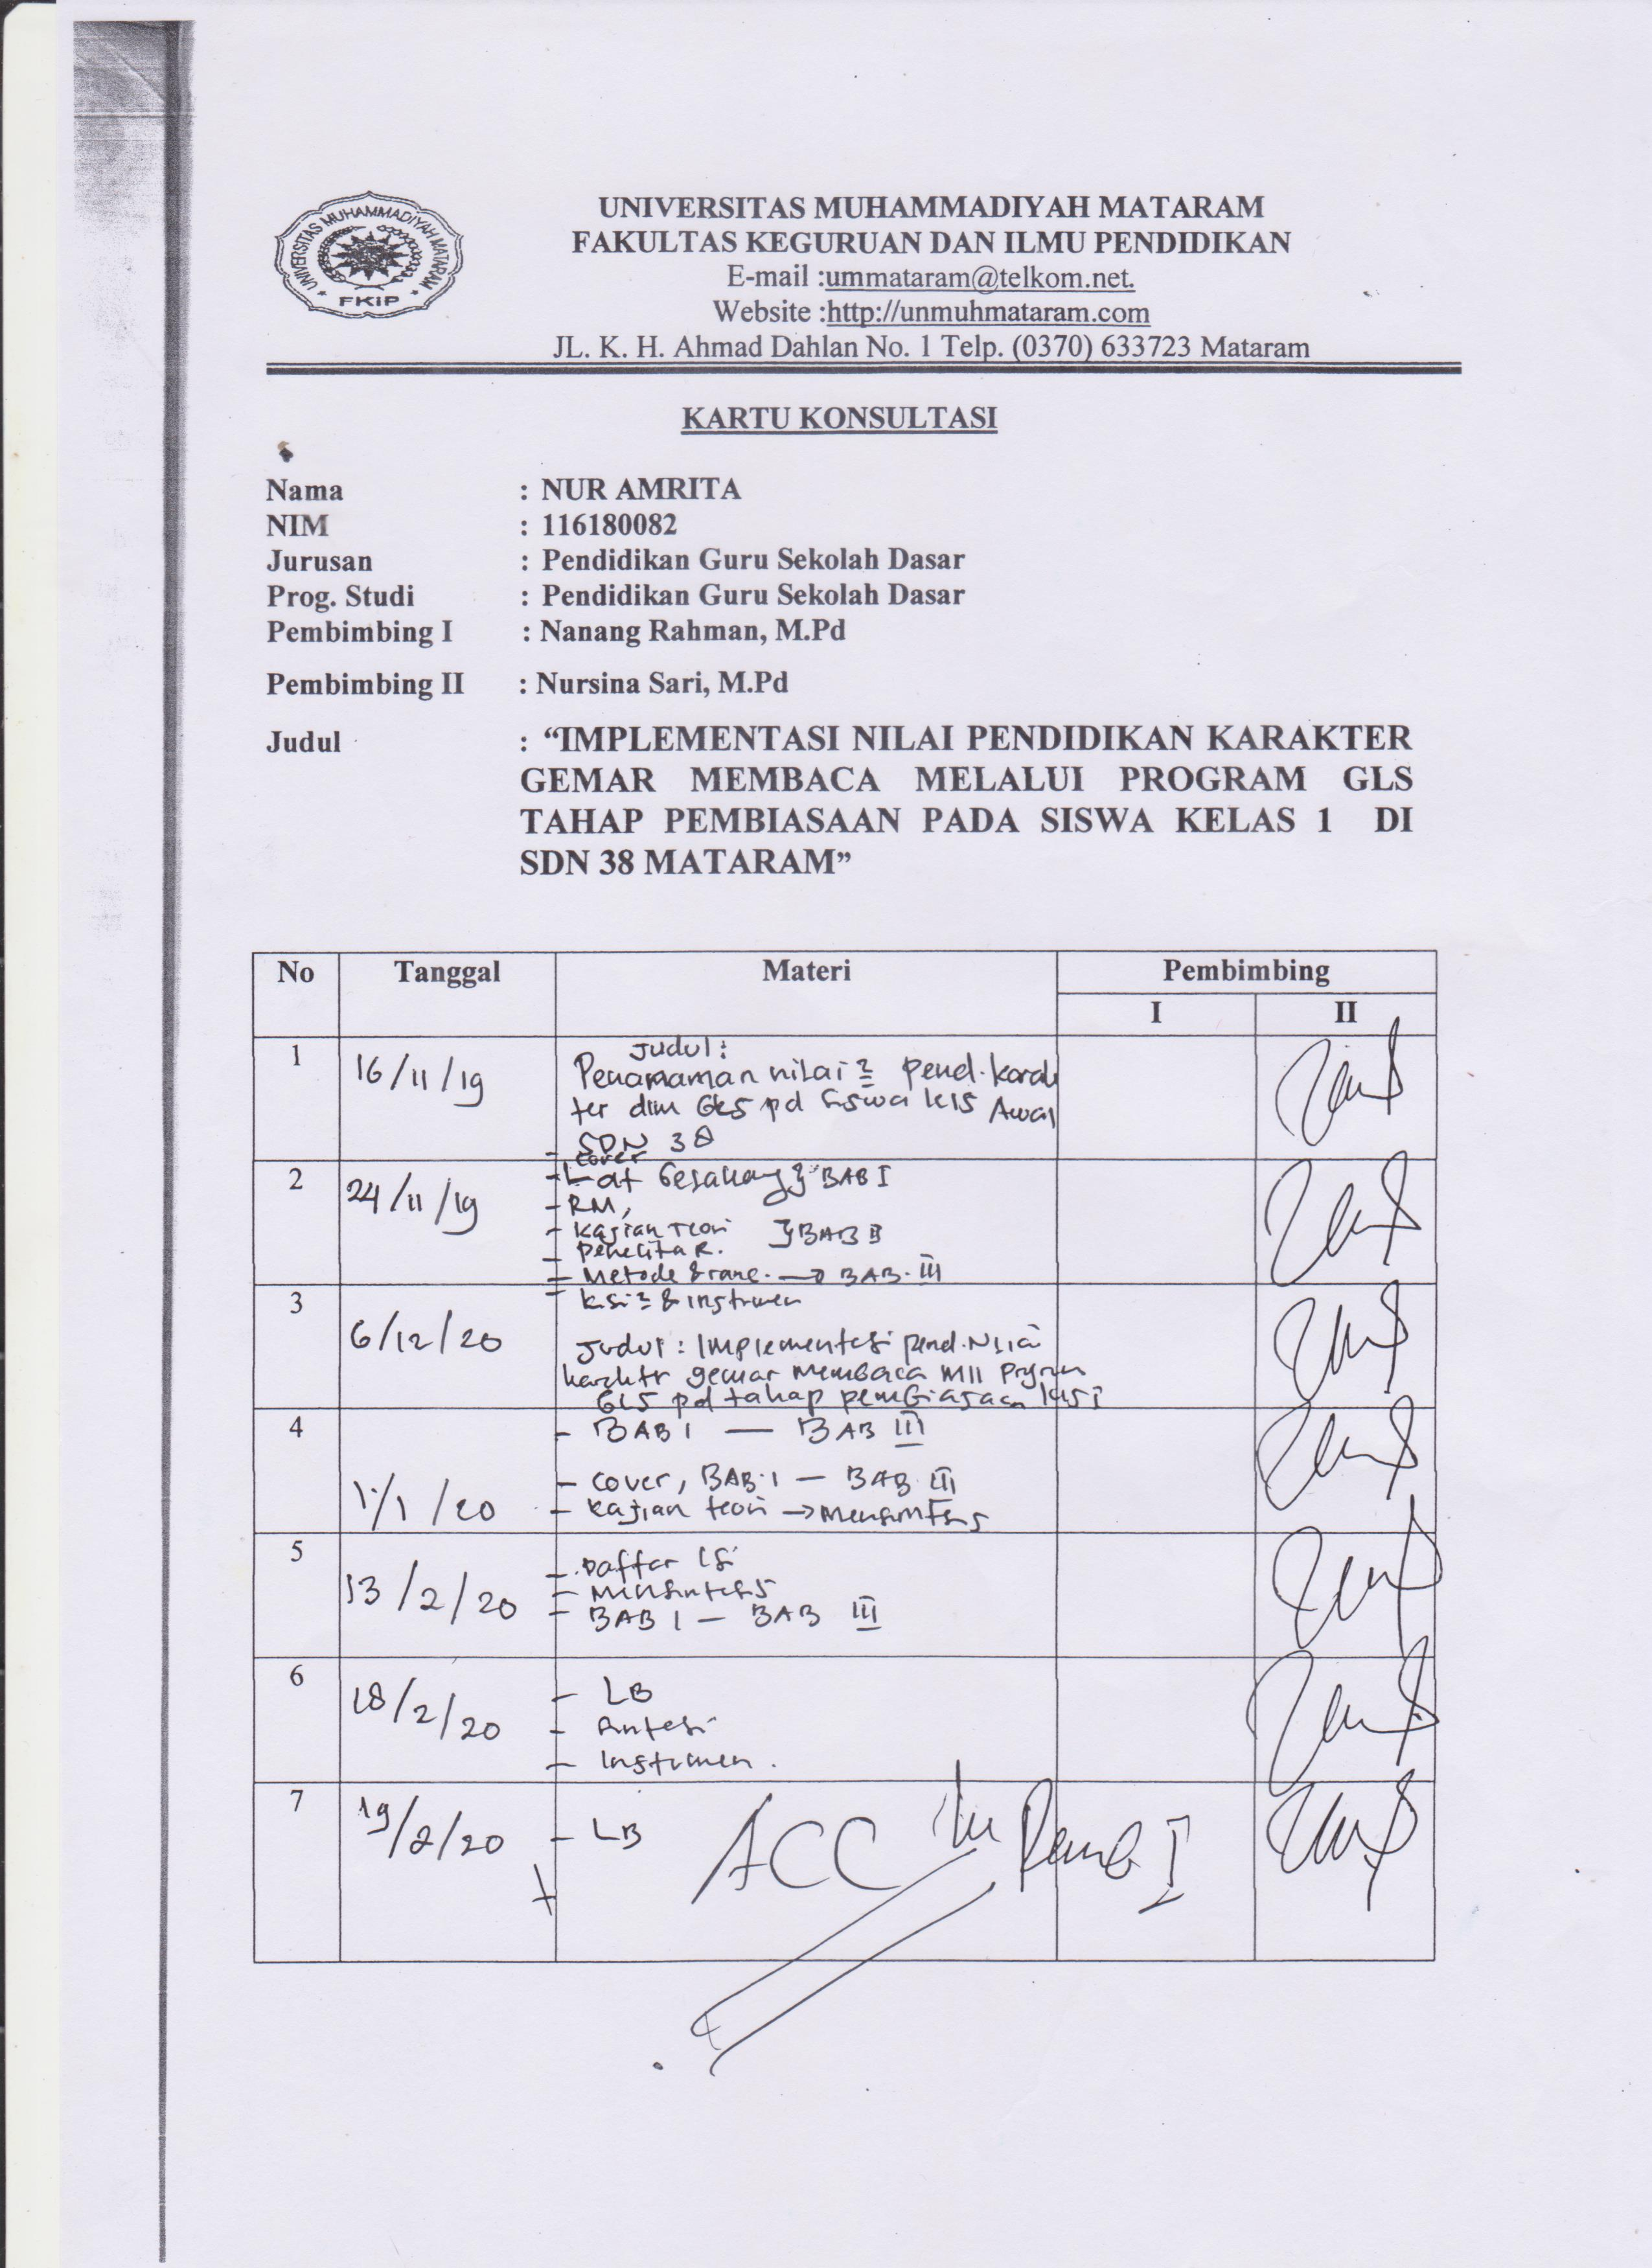 UNIVERSITAS MUHAMMADIYAH MATARAM
FKIP
UNIVERSITAS MUHAMMADIYAH MATARAM
FAKULTAS KEGURUAN DAN ILMU PENDIDIKAN
E-mail :ummataram@telkom.net.
Website :http://unmuhmataram.com
JL. K. H. Ahmad Dahlan No. 1 Telp. (0370) 633723 Mataram
KARTU KONSULTASI
Nama : NUR AMRITA
NIM : 116180082
Jurusan : Pendidikan Guru Sekolah Dasar
Prog. Studi : Pendidikan Guru Sekolah Dasar
Pembimbing I : Nanang Rahman, M.Pd
Pembimbing II : Nursina Sari, M.Pd
Judul : “IMPLEMENTASI NILAI PENDIDIKAN KARAKTER
GEMAR MEMBACA MELALUI PROGRAM GLS
TAHAP PEMBIASAAN PADA SISWA KELAS 1 DI
SDN 38 MATARAM”
No Tanggal Materi Pembimbing
I II
1 16/11/19 Judul :
Penanaman nilai2 pend. karak
ter dlm GLS pd Siswa kls Awal
SDN 38
- cover
2 24/11/19 - Lat Belakang } BAB I
- RM,
- kajian Teori } BAB II
- Penelita R.
- Metode & ranc. → BAB. III
- kisi2 & instrumen
3 6/12/20
Judul : Implementasi pend. Nilai
karaktr gemar Membaca Mll Program
GLS pd tahap pembiasaan kls I
4 - BAB I — BAB III
- cover, BAB. I — BAB III
/1/20 - kajian teori → Mensintesis
5 - Daftar Isi
13/2/20 - Mensintesis
- BAB I — BAB III
6 18/2/20 - LB
- Sintesi
- Instrumen.
7 19/2/20 - LB ACC Pemb I